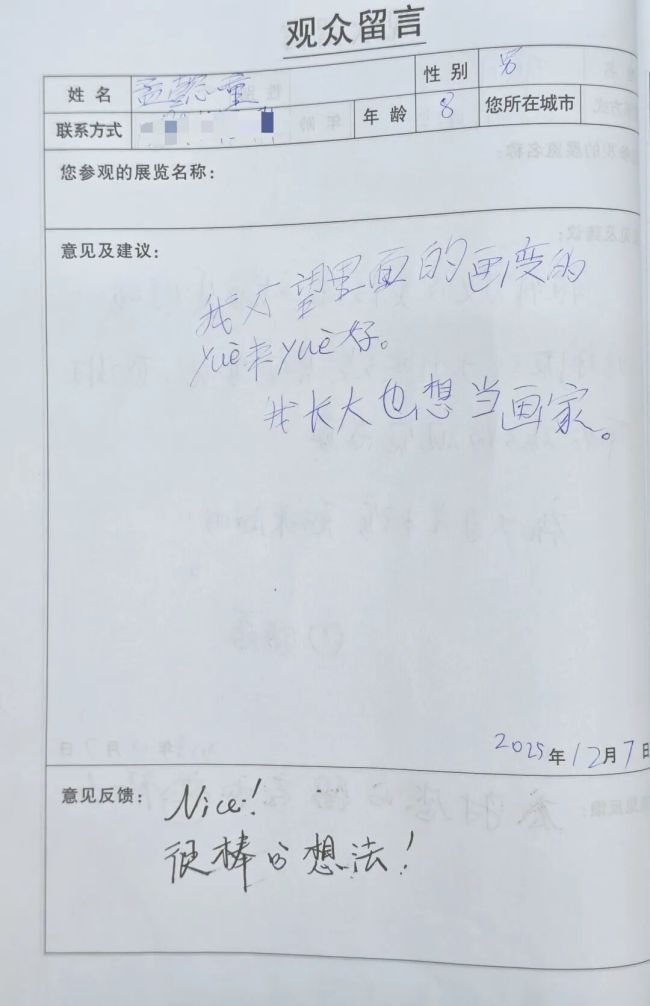 观众留言
姓 名 孟懿童 性 别 男
联系方式 年 龄 8 您所在城市
您参观的展览名称：
意见及建议：
我 望里面的画变的
yuè来yuè好。
我长大也想当画家。
2025年12月7日
意见反馈：
Nice!
很棒的想法！